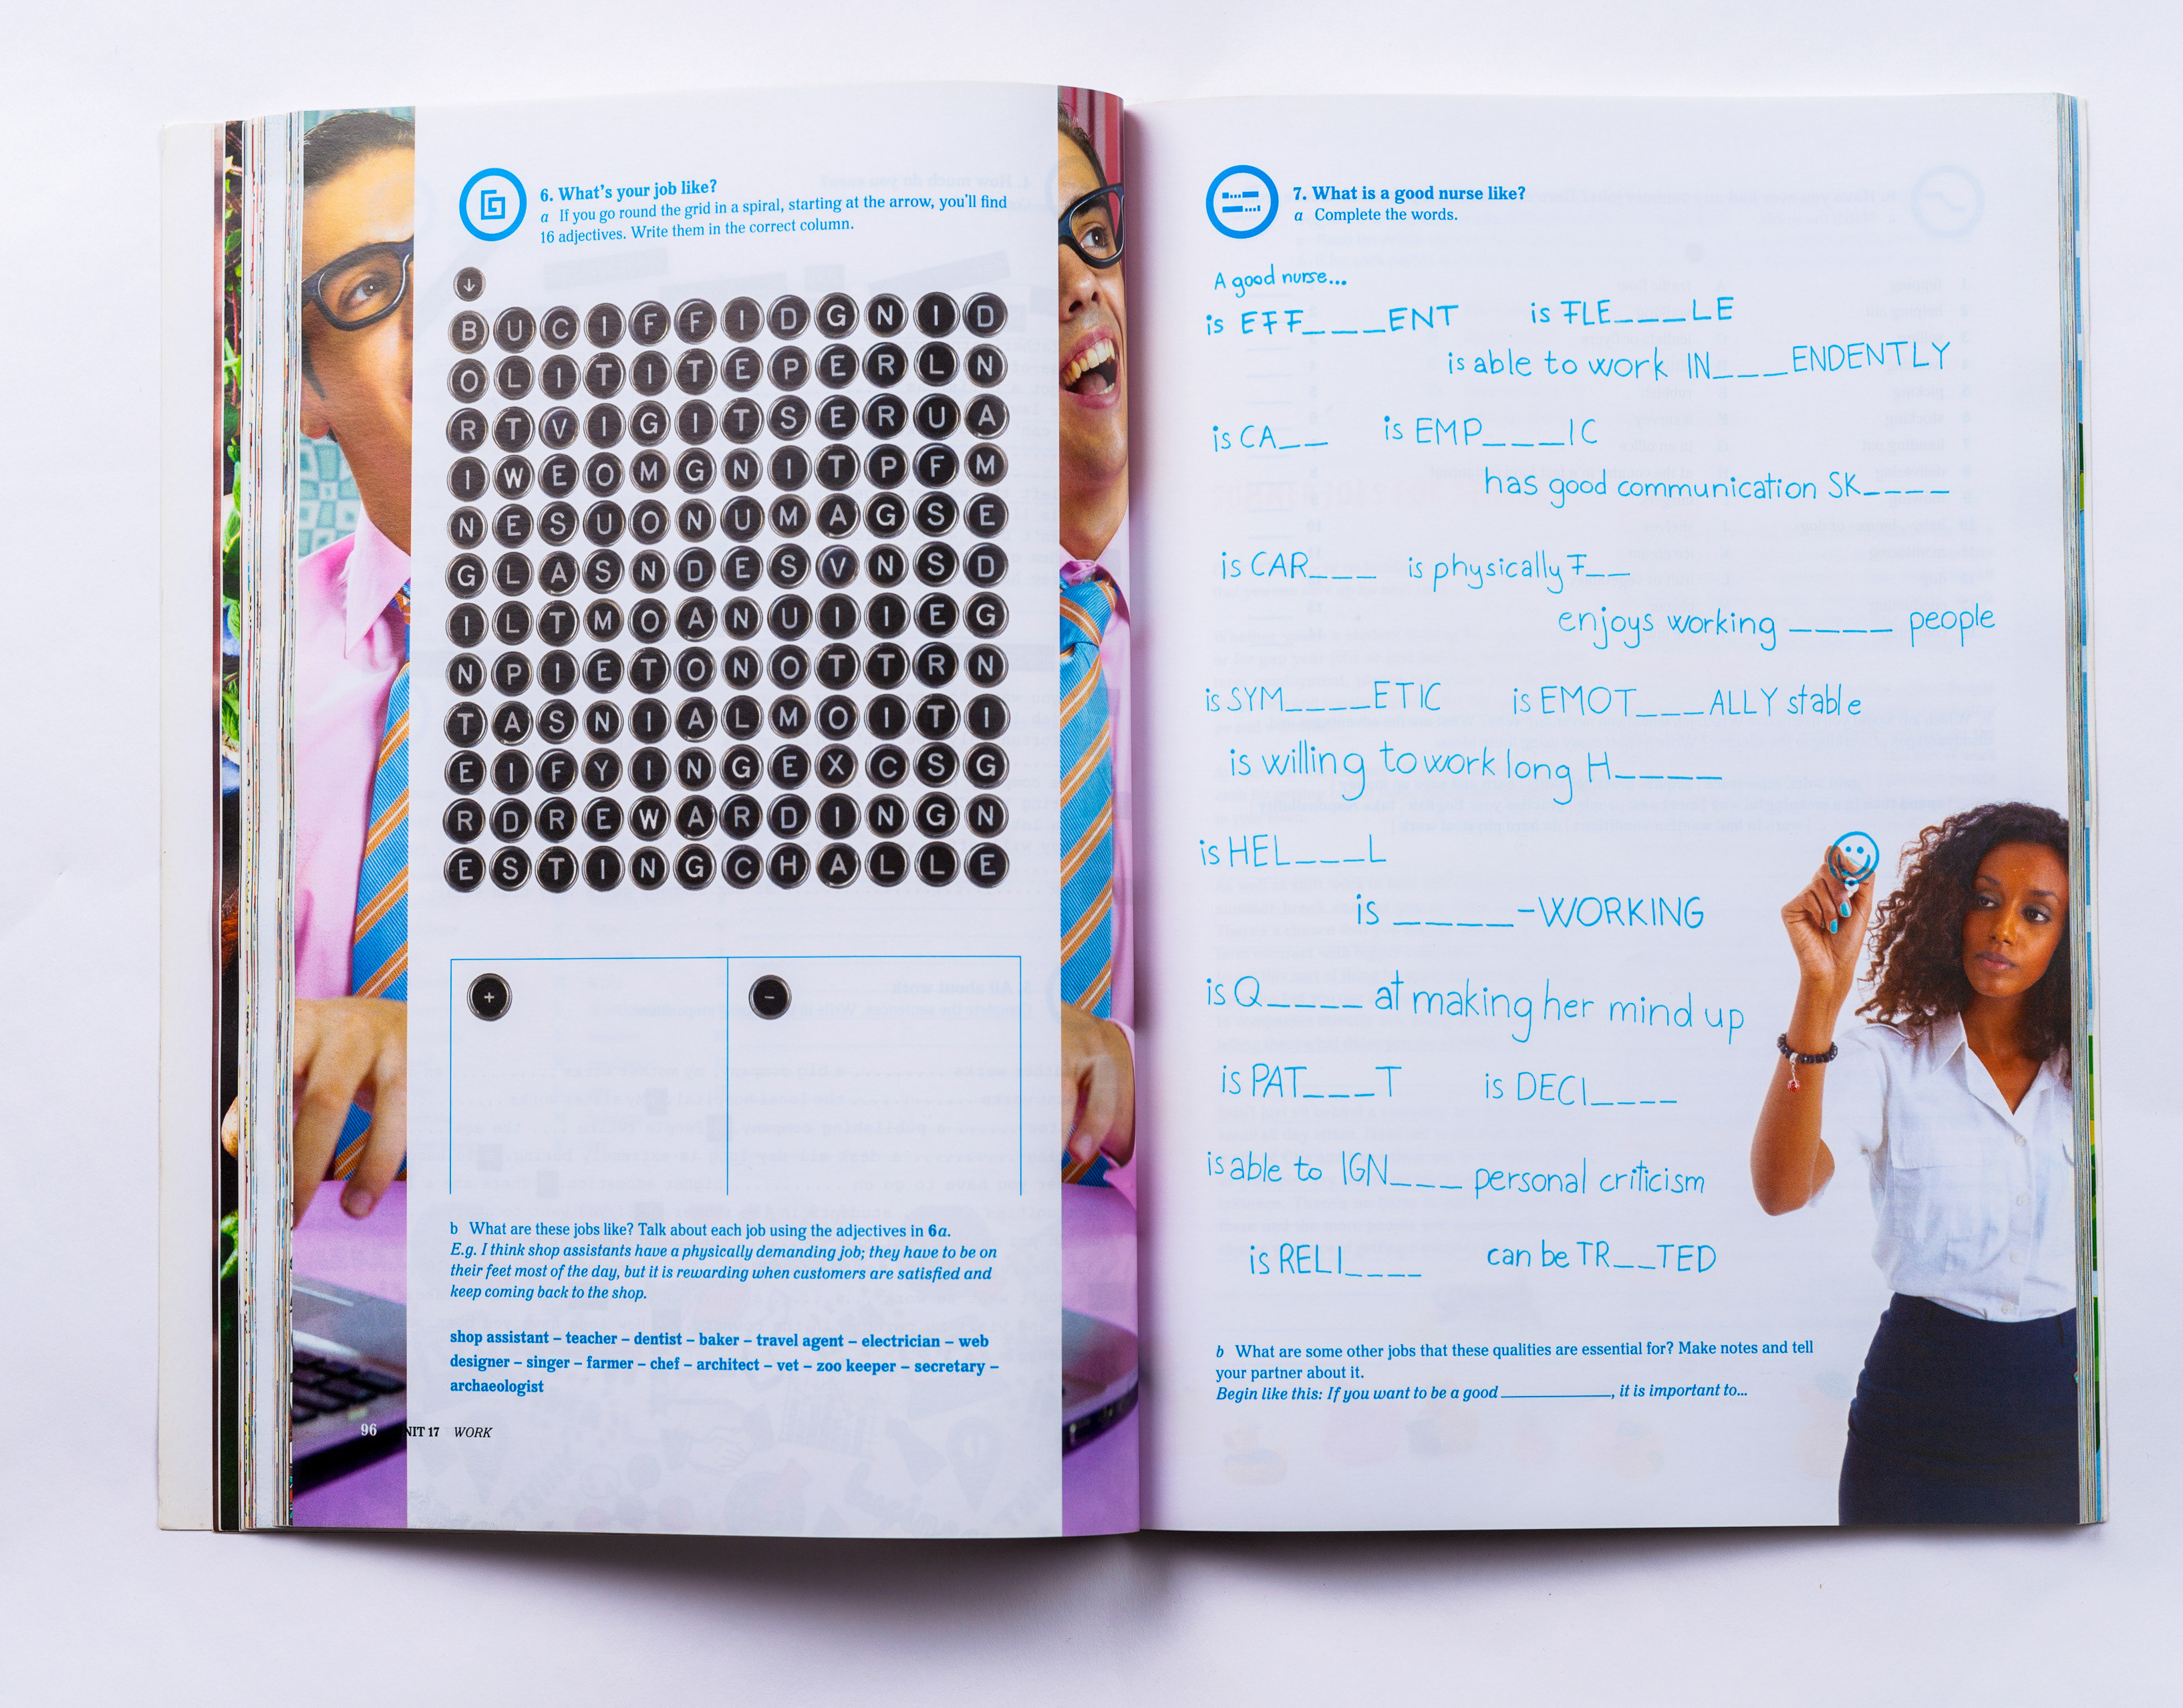 6. What's your job like?
a If you go round the grid in a spiral, starting at the arrow, you'll find
16 adjectives. Write them in the correct column.
↓
B U C I F F I D G N I D
O L I T I T E P E R L N
R T V I G I T S E R U A
I W E O M G N I T P F M
N E S U O N U M A G S E
G L A S N D E S V N S D
I L T M O A N U I I E G
N P I E T O N O T T R N
T A S N I A L M O I T I
E I F Y I N G E X C S G
R D R E W A R D I N G N
E S T I N G C H A L L E
+ -
b What are these jobs like? Talk about each job using the adjectives in 6a.
E.g. I think shop assistants have a physically demanding job; they have to be on
their feet most of the day, but it is rewarding when customers are satisfied and
keep coming back to the shop.
shop assistant – teacher – dentist – baker – travel agent – electrician – web
designer – singer – farmer – chef – architect – vet – zoo keeper – secretary –
archaeologist
96 NIT 17 WORK
7. What is a good nurse like?
a Complete the words.
A good nurse...
is EFF____ENT is FLE___LE
is able to work IN___ENDENTLY
is CA__ is EMP___IC
has good communication SK____
is CAR___ is physically F__
enjoys working ____ people
is SYM____ETIC is EMOT___ALLY stable
is willing to work long H____
is HEL___L
is ____-WORKING
is Q____ at making her mind up
is PAT___T is DECI____
is able to IGN___ personal criticism
is RELI____ can be TR__TED
b What are some other jobs that these qualities are essential for? Make notes and tell
your partner about it.
Begin like this: If you want to be a good ____________, it is important to...